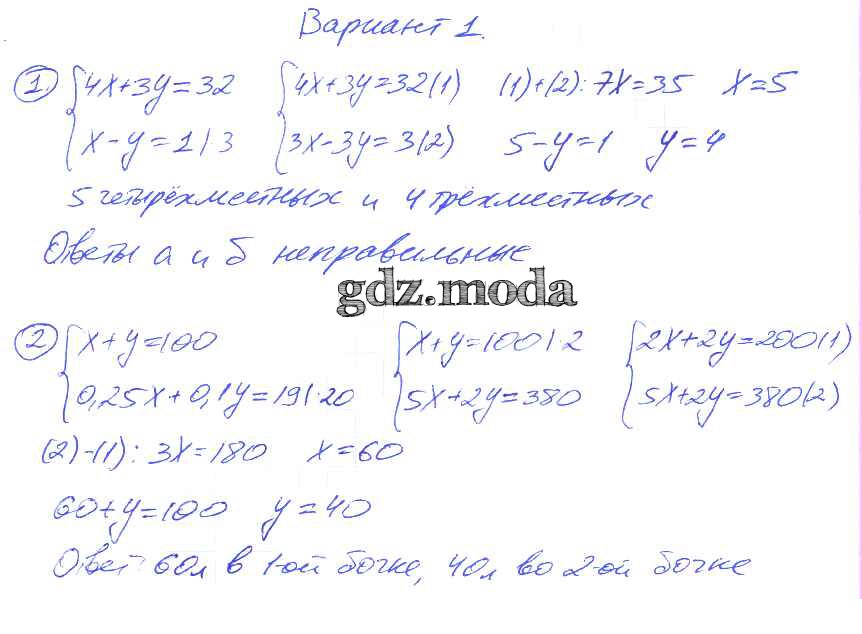 Вариант 1.
1 { 4x+3y=32 { 4x+3y=32(1) (1)+(2): 7x=35 x=5
x-y=1 | 3 3x-3y=3(2) 5-y=1 y=4
5 четырёхместных и 4 трёхместных
Ответы а и б неправильные
gdz.moda
2 { x+y=100 { x+y=100 | 2 { 2x+2y=200(1)
0,25x+0,1y=19|·20 5x+2y=380 5x+2y=380(2)
(2)-(1): 3x=180 x=60
60+y=100 y=40
Ответ: 60л в 1-ой бочке, 40л во 2-ой бочке